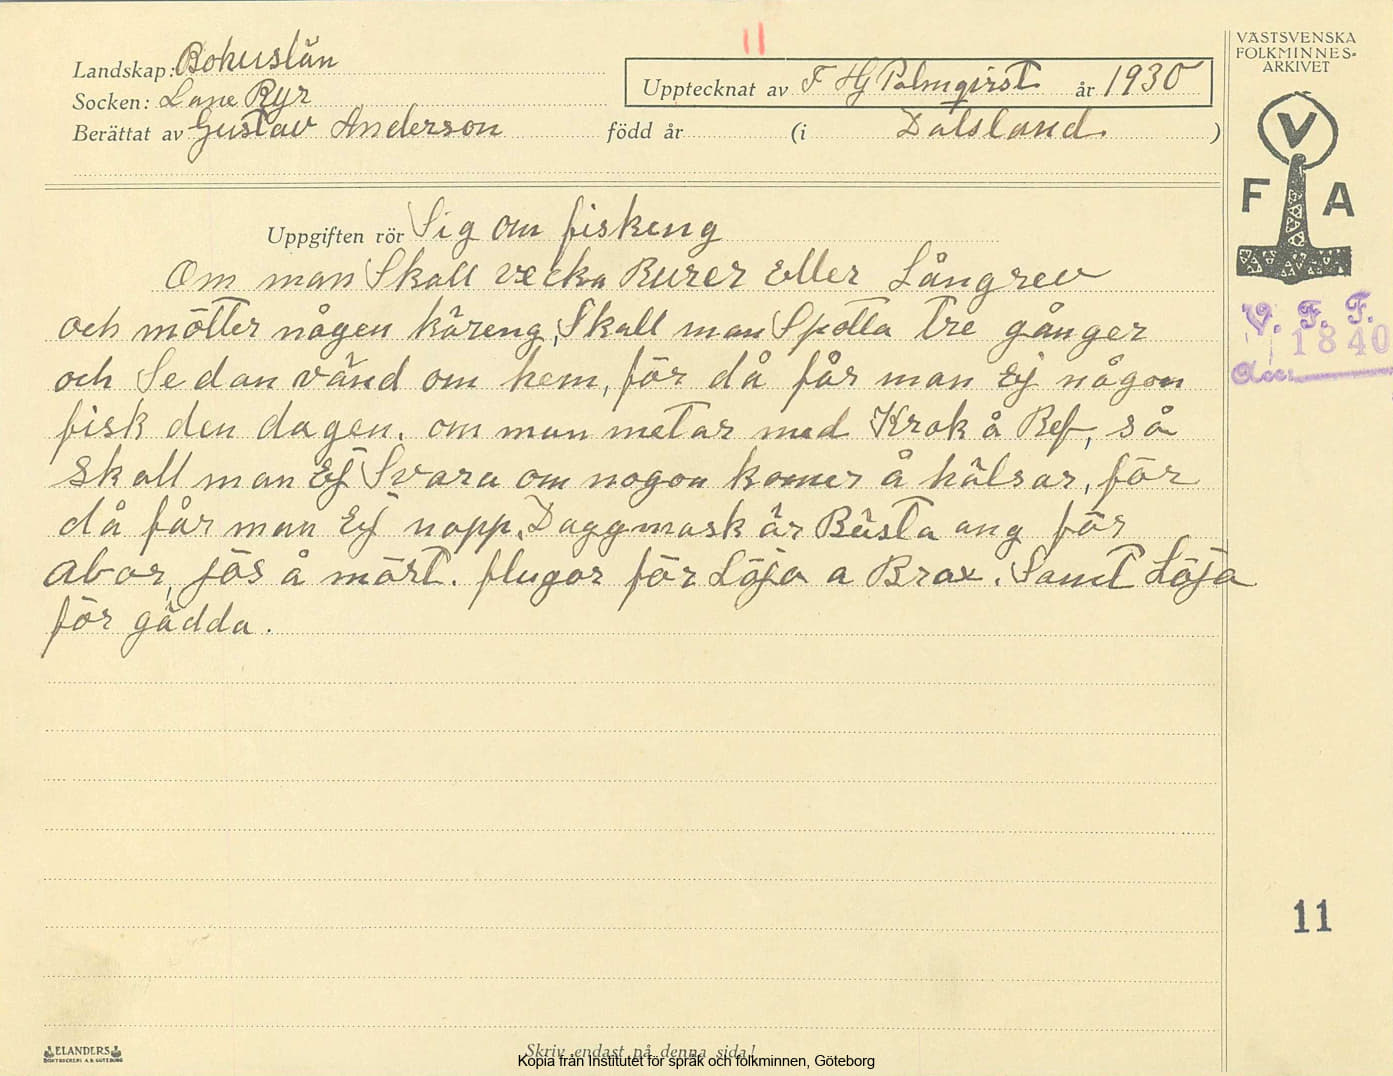 11
Landskap: Bohuslän
Socken: Lane Ryr
Berättat av Gustav Anderson född år (i Dalsland. )
Upptecknat av F Hj Palmqvist år 1930
VÄSTSVENSKA
FOLKMINNES-
ARKIVET
V
F A
V. F. F.
1840
Acc.
Uppgiften rör Sig om fiskeng
Om man Skall vecka Burer eller Långrev
och mötter någen käreng, Skall man Spotta tre gånger
och Sedan vänd om hem, för då får man Ej någon
fisk den dagen. om man metar med Krok å Ref, så
skall man Ej Svara om nogon komer å hälsar, för
då får man Ej napp. Daggmask är Bästa ang för
abor, jös å mört. flugor för Löja a Brax. Samt Löja
för gädda.
11
ELANDERS
BOKTRYCKERI A.B. GÖTEBORG
Skriv endast på denna sida!
Kopia från Institutet för språk och folkminnen, Göteborg